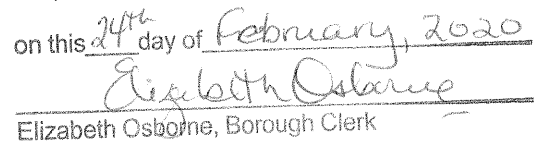 on this 24th day of February, 2020
Elizabeth Osborne
Elizabeth Osborne, Borough Clerk